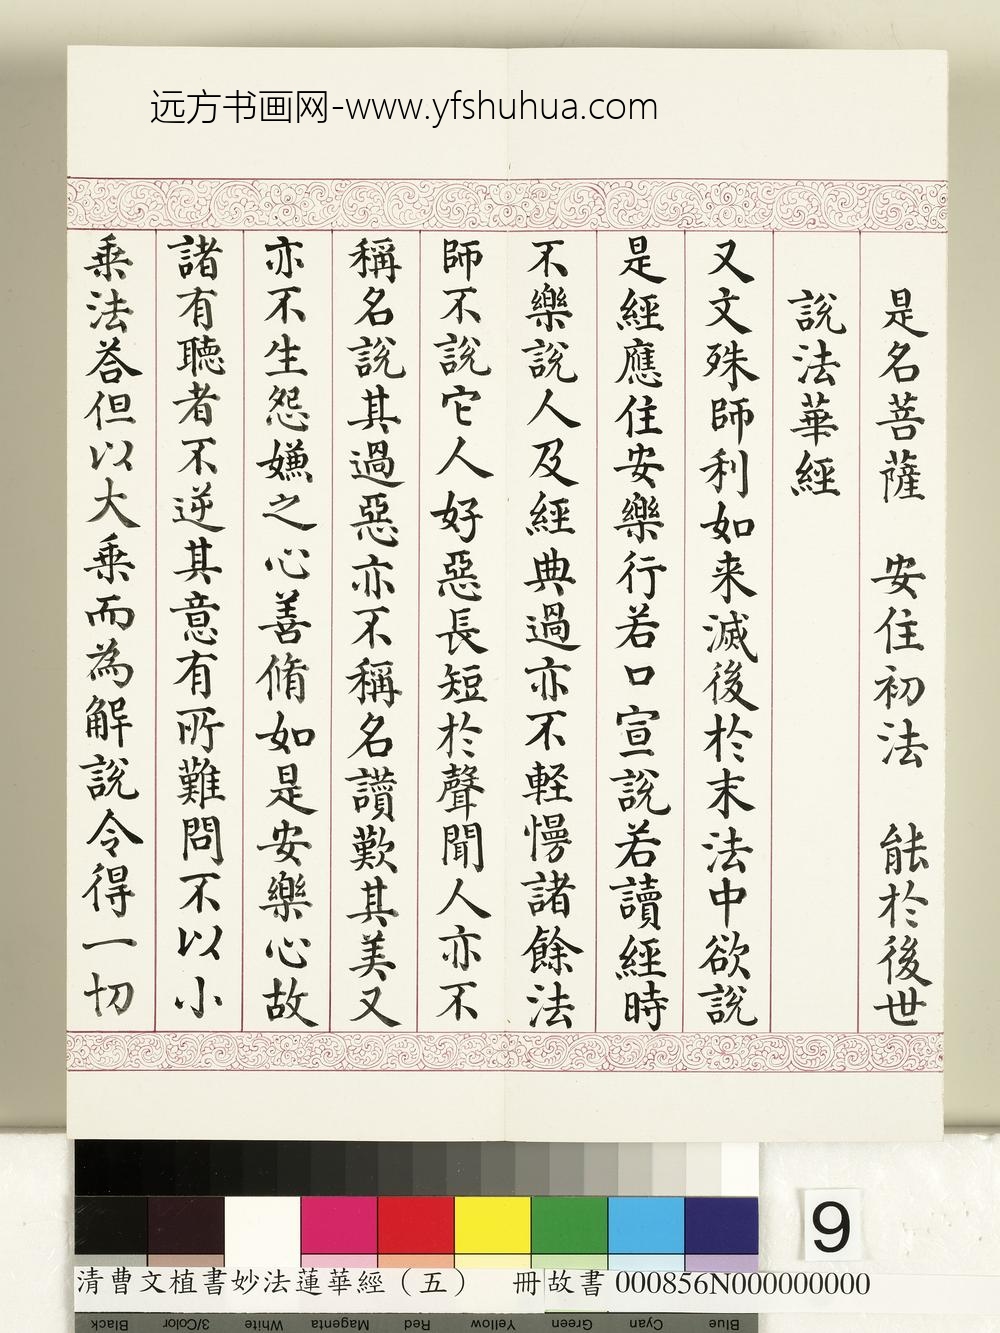 远方书画网-www.yfshuhua.com
是名菩薩　安住初法　能於後世
說法華經
又文殊師利如来滅後於末法中欲說
是經應住安樂行若口宣說若讀經時
不樂說人及經典過亦不軽慢諸餘法
師不說它人好惡長短於聲聞人亦不
稱名說其過惡亦不稱名讃歎其美又
亦不生怨嫌之心善脩如是安樂心故
諸有聴者不逆其意有所難問不以小
乗法荅但以大乗而為解說令得一切
9
清曹文植書妙法蓮華經（五）　冊 故書 000856N000000000
Black 3/Color White Magenta Red Yellow Green Cyan Blue